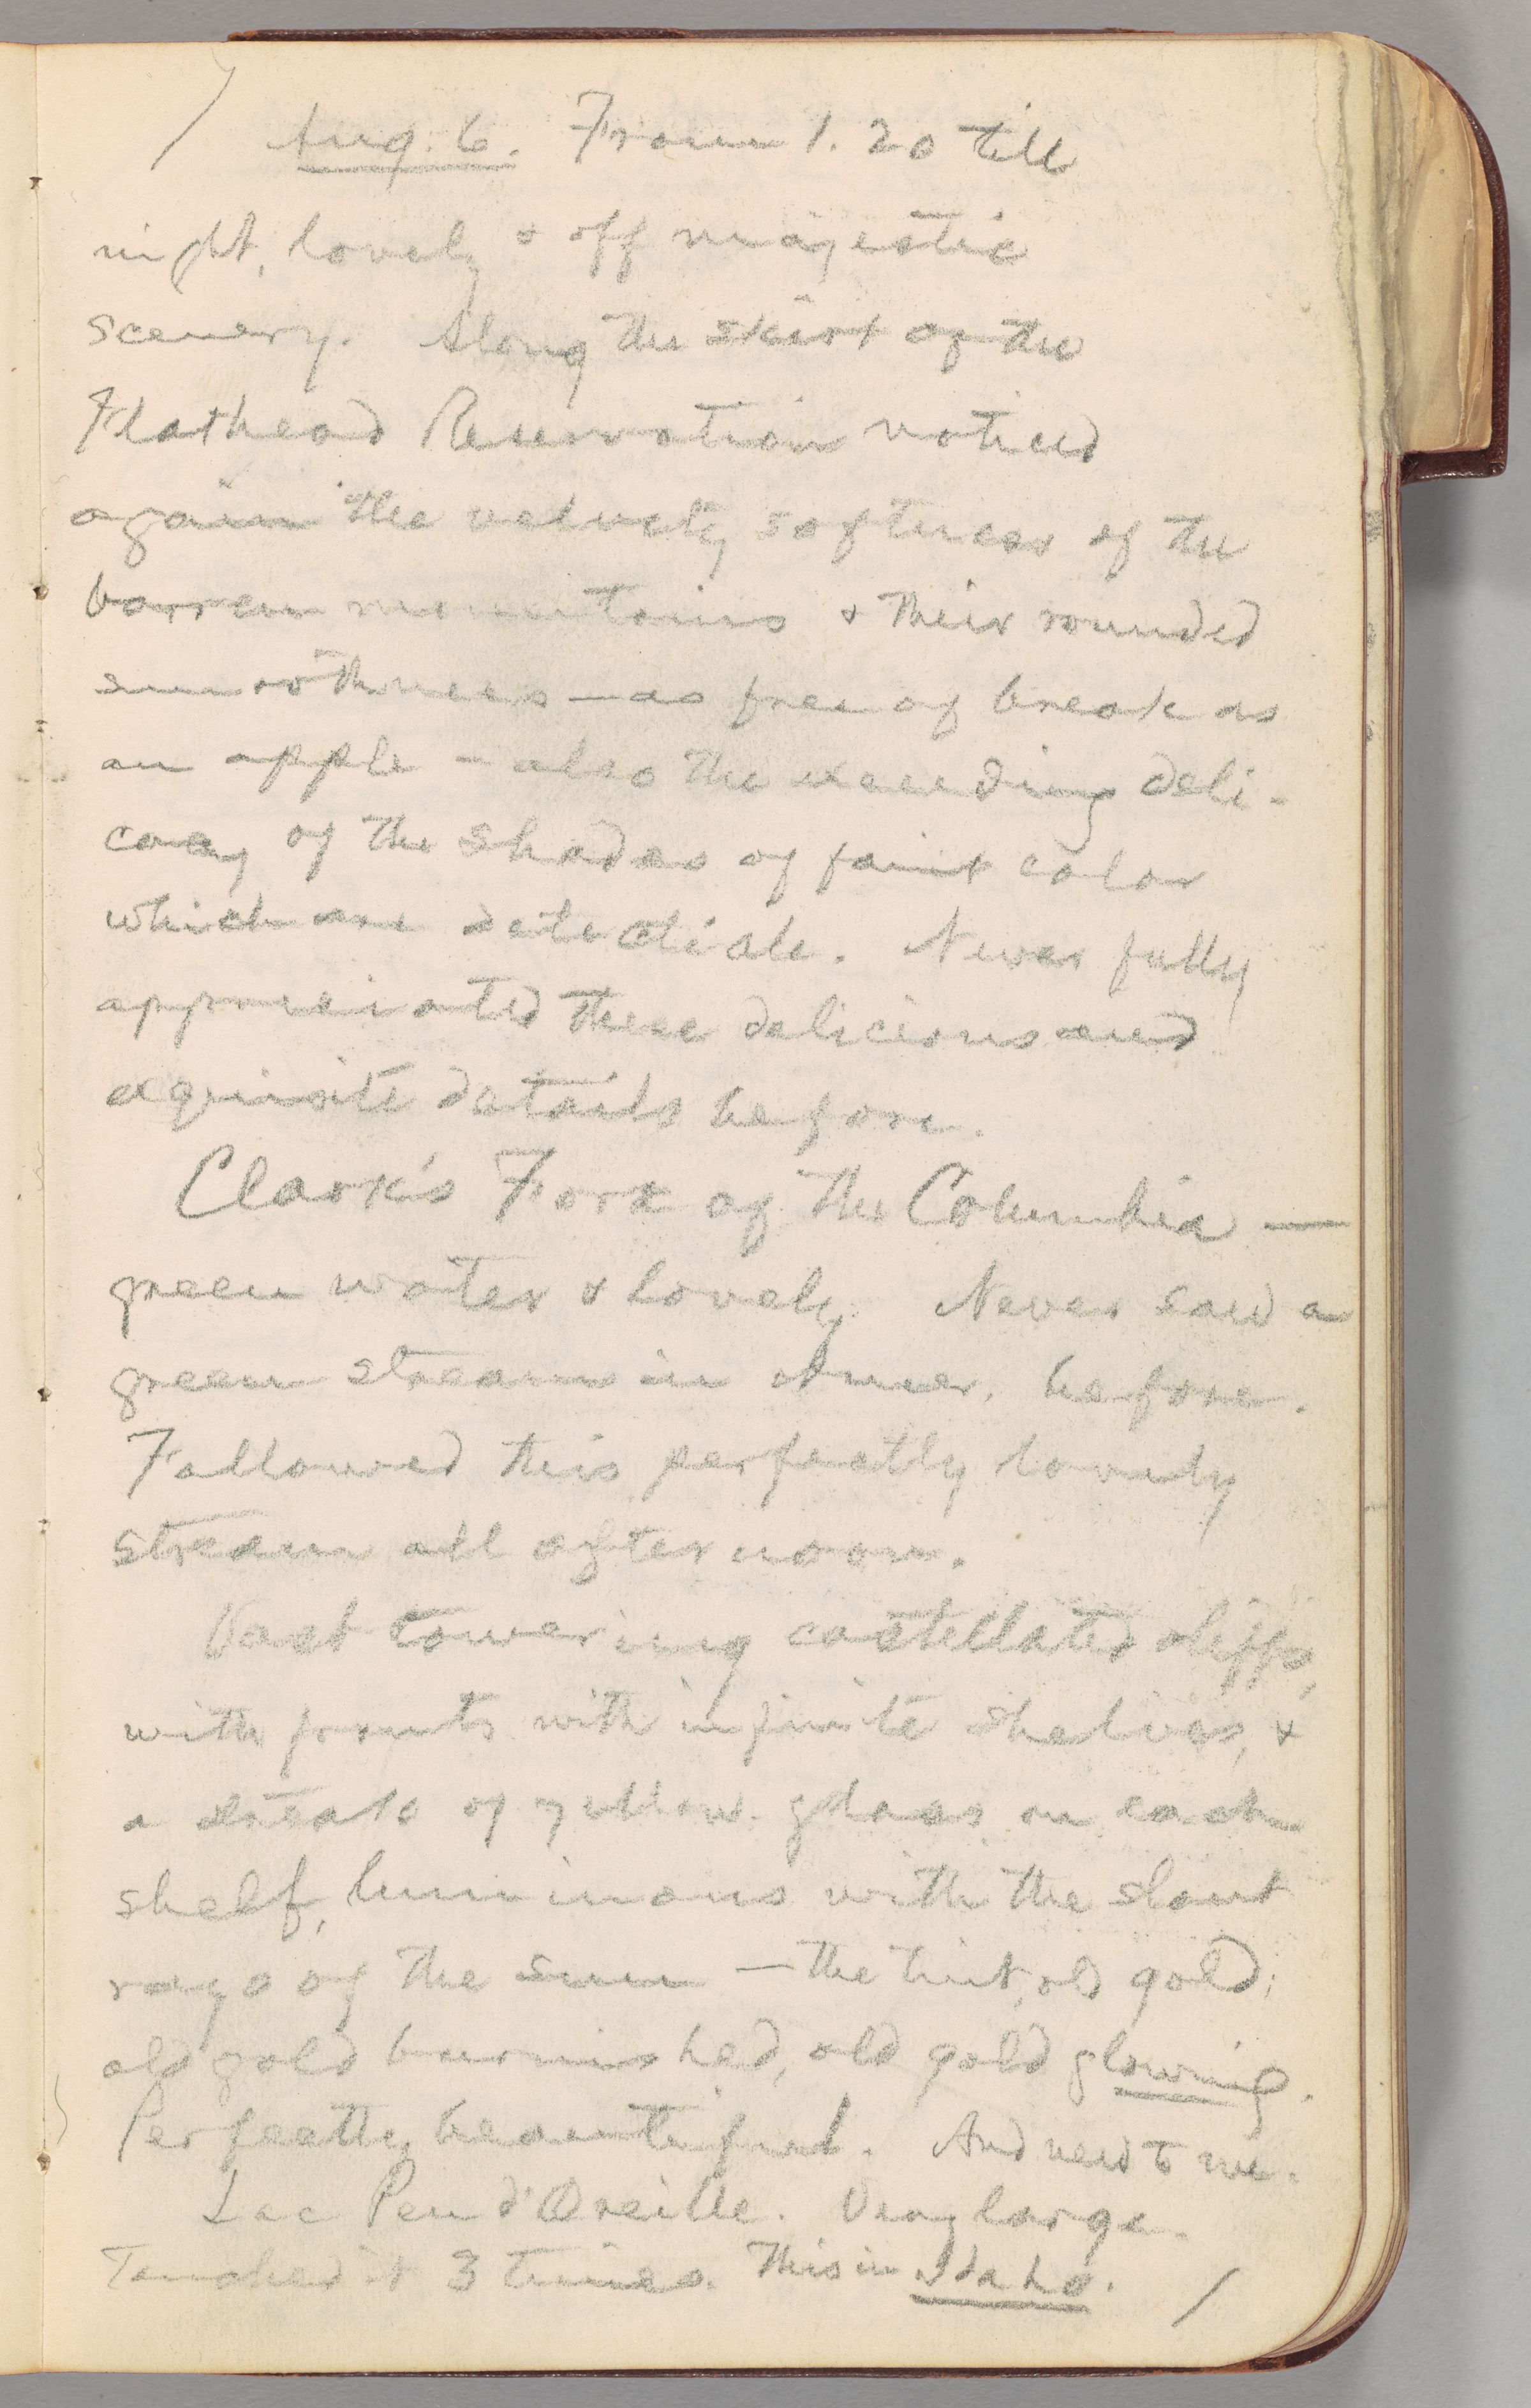 Aug. 6. From 1.20 till
night, lovely & off majestic
scenery. Along the skirt of the
Flathead Reservation noticed
again the velvety softness of the
barren mountains & their rounded
smoothness — as free of break as
an apple — also the exceeding deli-
cacy of the shades of faint color
which are detectible. Never fully
appreciated these delicious and
exquisite details before.
Clark's Fork of the Columbia —
green water & lovely. Never saw a
green stream in Amer. before.
Followed this perfectly lovely
stream all afternoon.
Vast towering castellated cliffs,
with fronts with infinite shelves, &
a streak of yellow grass on each
shelf, luminous with the slant
rays of the sun — the tint, old gold;
old gold burnished, old gold glowing.
Perfectly beautiful. And new to me.
Lac Pen d'Oreille. Very large.
Touched it 3 times. This in Idaho.